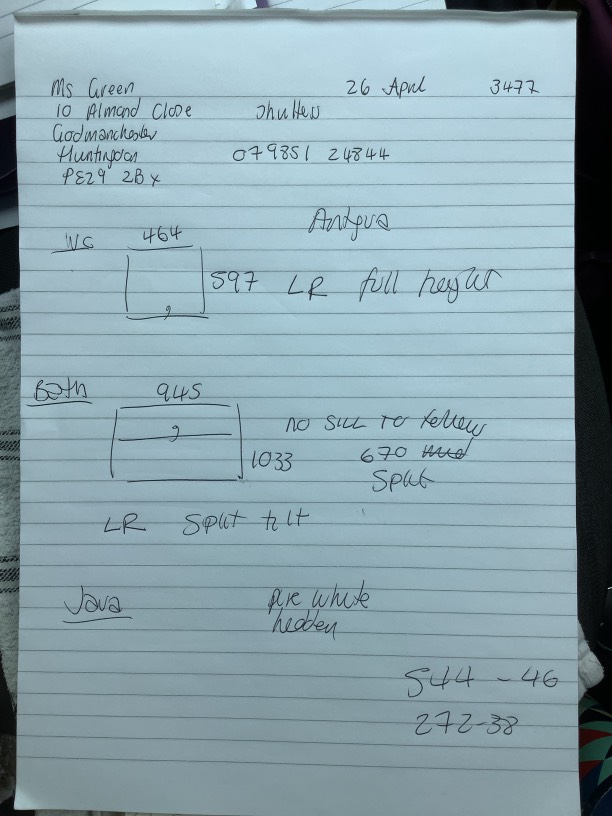 Ms Green 26 April 3477
10 Almond Close Shutters
Godmanchester
Huntingdon 079851 24844
PE29 2BX
Antigua
WC 464
597 LR full height
Bath 945
no sill to follow
1033 670
Split
LR Split tilt
Java pure white
hidden
544 - 46
272-38